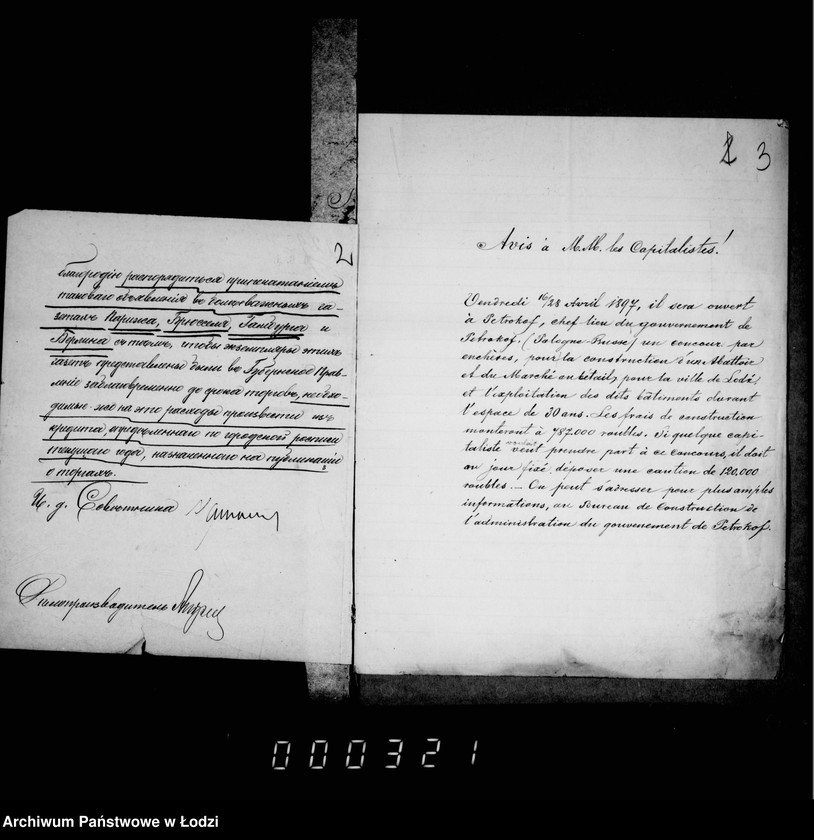 2
благородію распорядиться припечатаніемъ
таковаго объявленія въ болѣе важныхъ га-
зетахъ Парижа, Брюсселя, Гамбурга и
Берлина съ тѣмъ, чтобы экземпляры этихъ
газетъ представлены были въ Губернское Прав-
леніе заблаговременно до срока торговъ, необхо-
димые же на это расходы произвести изъ
кредита, опредѣленнаго по городской росписи
текущаго года, назначеннаго на публикаціи
о торгахъ.
И. д. Совѣтника
Дѣлопроизводитель
1 3
Avis à M.M. les Capitalistes!
Vendredi 16/28 Avril 1897, il sera ouvert
à Petrokof, chef lieu du gouvernement de
Petrokof. (Pologne Russe) un concour par
enchères, pour la construction d'un Abattoir
et du Marché au bétail, pour la ville de Lodz,
et l'exploitation des dits bâtements durant
l'espace de 30 ans. Les frais de construction
monteront à 787.000 roubles. Si quelque capi-
taliste voudrait veut prendre part à ce concours, il doit
au jour fixé, déposer une caution de 120,000
roubles. — On peut s'adresser pour plus amples
informations, au Bureau de Construction de
l'administration du gouvenement de Petrokof.
000321
Archiwum Państwowe w Łodzi